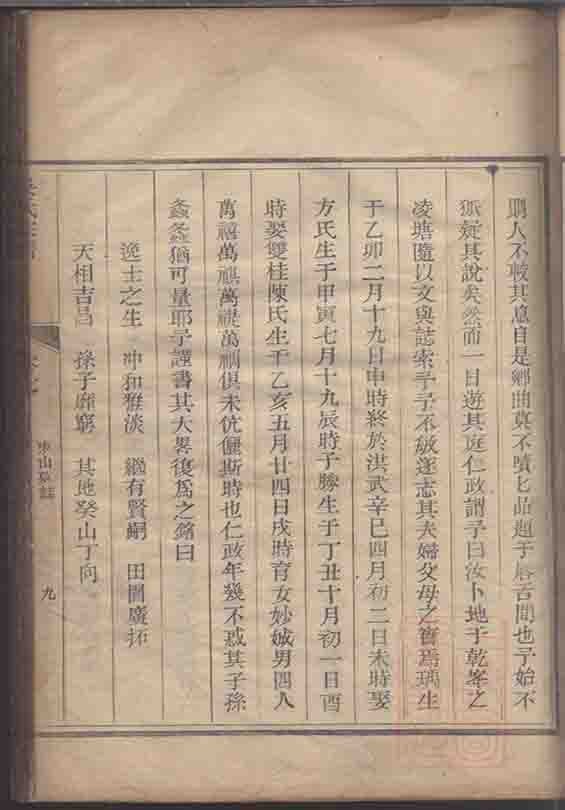 賙人不較其息自是鄉曲莫不嘖七品題于唇舌間也予始不
狐疑其說矣然而一日遊其庭仁政謂予曰汝卜地于乾峯之
凌塘隨以文與誌索予予不敏遂志其夫婦父母之實焉瑀生
于乙卯二月十九日申時終於洪武辛巳四月初二日未時娶
方氏生于甲寅七月十九辰時子勝生于丁丑十月初一日酉
時娶雙桂陳氏生于乙亥五月廿四日戌時育女妙娍男四人
萬禧萬祺萬禔萬禂俱未伉儷斯時也仁政年幾不惑其子孫
螽螽猶可量耶予謹書其大畧復爲之銘曰
逸士之生 冲和雅淡 繼有賢嗣 田園廣拓
天相吉昌 孫子靡窮 其地癸山丁向
山墓誌
九